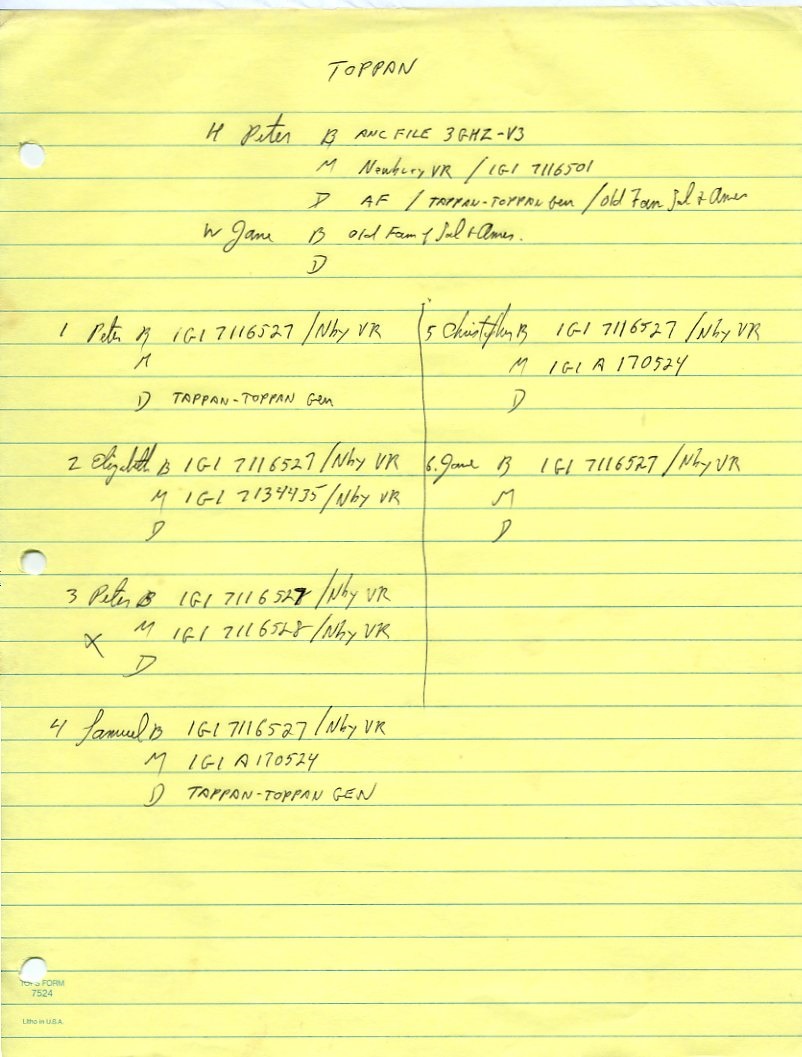 TOPPAN
H Peter B ANC FILE 3GHZ-V3
M Newbury VR / IGI 7116501
D AF / TAPPAN-TOPPAN Gen / Old Fam Sal & Ames
W Jane B Old Fam of Sal & Ames.
D
1 Peter B IGI 7116527 / Nby VR
M
D TAPPAN-TOPPAN Gen
2 Elizabeth B IGI 7116527 / Nby VR
M IGI 7134435 / Nby VR
D
3 Peter B IGI 7116527 / Nby VR
X M IGI 7116528 / Nby VR
D
4 Samuel B IGI 7116527 / Nby VR
M IGI A170524
D TAPPAN-TOPPAN GEN
5 Christopher B IGI 7116527 / Nby VR
M IGI A 170524
D
6. Jane B IGI 7116527 / Nby VR
M
D
FORM
7524
Litho in U.S.A.